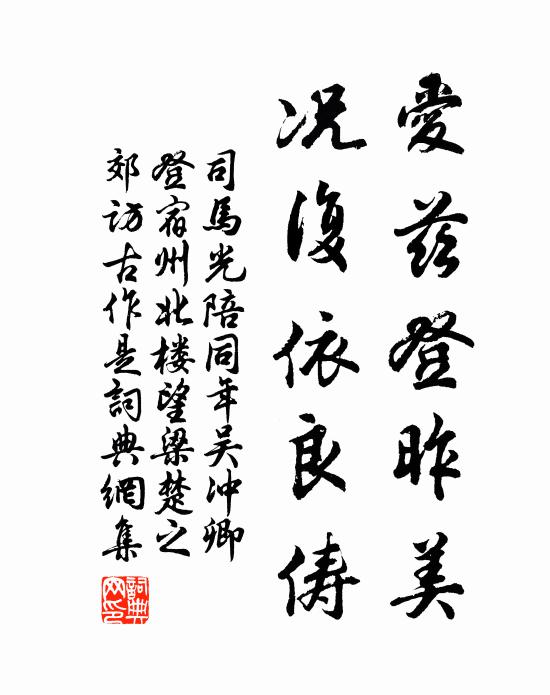 愛茲登昨美
况復依良儔
司馬光陪同年吴冲卿
登宿州北楼望梁楚之
郊訪古作是詞典網集
詞典网印